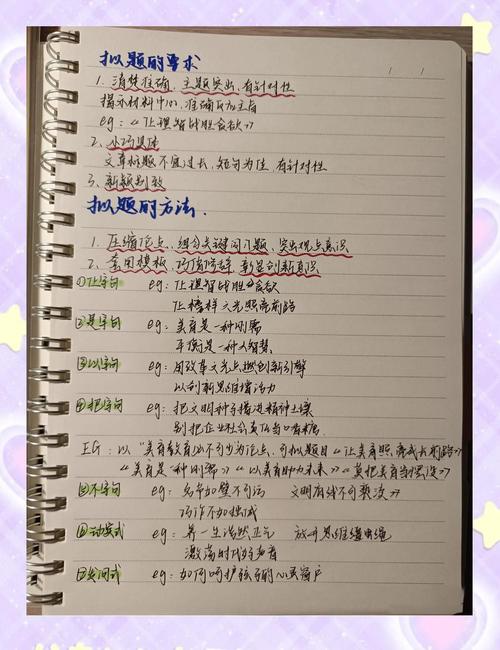 拟题的要求
1、清楚准确，主题突出，有针对性
揭示材料中心，准确反加主旨
eg：《让理智战胜贪欲》
2、小巧具体
文章标题不宜过长，短句为佳，有针对性
3、新颖别致
拟题的方法.
1、压缩论点，组合关键词入题，突出观点意识
2、套用模板，巧借修辞，彰显创新意识
①让字句 eg：让理智战胜贪欲
让榜样之光照亮前路
②是字句 eg：美育是一种刚需
平衡是一种大智慧
③以字句 eg：用改革之光点燃创新引擎
以创新思维增活力
④把字句 eg：把文明种子播进精神土壤
别把企业社会责任当口香糖
EG：以"美育教育必不可少为论点，可拟题目《让美育照亮成长前路》
《美育是一种刚需》《以美育助力未来》《莫把美育当累设》
⑤不字句 eg：名节如璧不可污 文明有线不可亵渎》
巧诈不如拙诚
⑥动宾式 eg：养一生浩然正气 放开思维缰绳
激荡时代
⑦发问式 eg：如何呵护孩子的心灵窗户